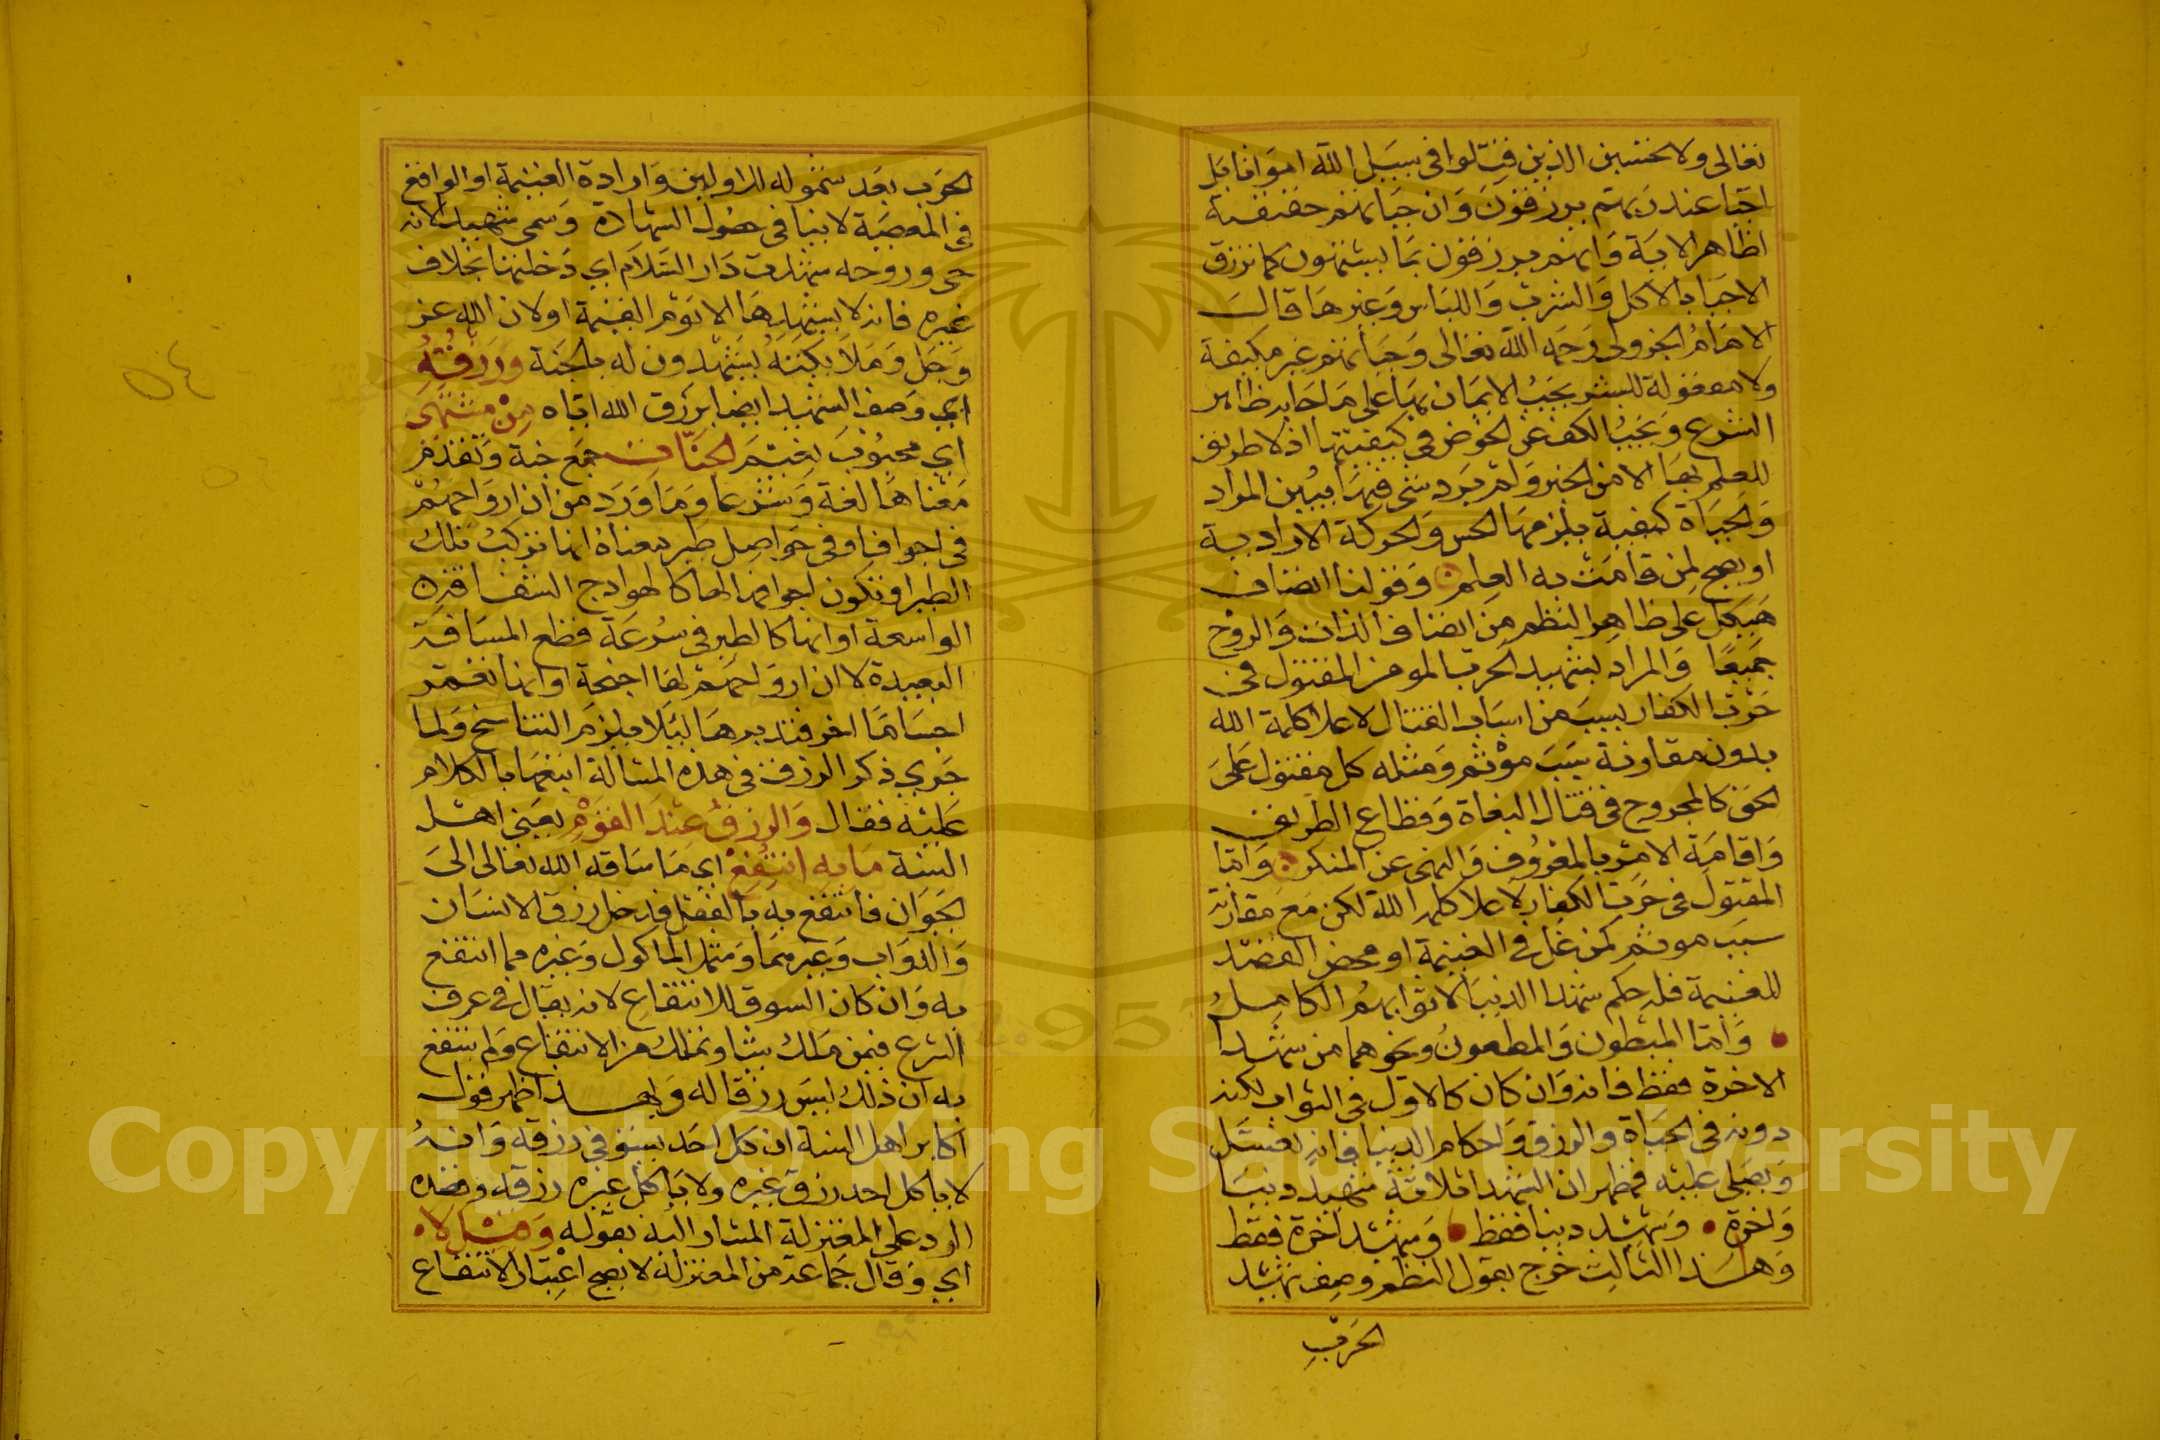 تعالى ولا تحسبن الذين قتلوا في سبيل الله امواتا بل
احيا عند ربهم يرزقون وان حياتهم حقيقية
لظاهر الاية وانهم يرزقون بما يشتهون كما ترزق
الاحيا بالاكل والشرب واللباس وغيرها قال
الامام الجزولي رحمه الله تعالى وحياتهم غير مكيفة
ولا معقولة للبشر يجب الايمان بها على ما جا به ظاهر
الشرع ويجب الكف عن الخوض في كيفيتها اذ لا طريق
للعلم بها الا من الخبر ولم يرد شي فيها يبين المراد
والحياة كيفية يلزمها الحس والحركة الارادية
او يصح لمن قامت به العلم وقولنا اتصاف
هيكل على ظاهر النظم من اتصاف الذات والروح
جميعا والمراد بشهيد الحرب المومن المقتول في
حرب الكفار بسبب من اسباب القتال لاعلا كلمة الله
بدون مقارنة سبب موثم ومثله كل مقتول على
الحق كالمجروح في قتال البغاة وقطاع الطريق
واقامة الامر بالمعروف والنهي عن المنكر واما
المقتول في حرب الكفار لاعلا كلمة الله لكن مع مقارنة
سبب موثم كمن غل في الغنيمة او محض القصد
للغنيمة فله حكم شهدا الدنيا لا ثوابهم الكامل
واما المبطون والمطعون ونحوهما من شهدا
الاخرة فقط فانه وان كان كالاول في الثواب لكنه
دونه في الحياة والرزق واحكام الدنيا فانه يغسل
ويصلى عليه فظهر ان الشهدا ثلاثة شهيد دنيا
واخرة وشهيد دنيا فقط وشهيد اخرة فقط
وهذا الثالث خرج بقول النظم وصف شهيد
الحرب
الحرب بعد شموله للاولين وارادة الغنيمة او الواقع
في المعصية لا ينافي حصول الشهادة وسمي شهيدا لانه
حي وروحه شهدت دار السلام اي دخلتها بخلاف
غيره فانه لا يشهدها الا يوم القيمة او لان الله عز
وجل وملايكته يشهدون له بالجنة ورزقه
اي وصف الشهيد ايضا برزق الله اياه من مشتهى
اي محبوب نعيم الجنات جمع جنة وتقدم
معناها لغة وشرعا وما ورد من ان ارواحهم
في اجواف او في حواصل طير معناه انها تركب تلك
الطير او تكون اجوافها لها كالهوادج الشفافة
الواسعة او انها كالطير في سرعة قطع المسافة
البعيدة لا ان ارواحهم لها اجنحة او انها تعمر
اجساما اخر فتدبرها ليلا يلزم التناسخ ولما
جرى ذكر الرزق في هذه المسالة اتبعها بالكلام
عليه فقال والرزق عند القوم يعني اهل
السنة ما به انتفع اي ما ساقه الله تعالى الى
الحيوان فانتفع به بالفعل فدخل رزق الانسان
والدواب وغيرهما وشمل الماكول وغيره مما انتفع
به وان كان السوق للانتفاع لانه يقال في عرف
الشرع فيمن ملك شيا وتمكن من الانتفاع ولم ينتفع
به ان ذلك ليس رزقا له وبهذا ظهر قول
اكابر اهل السنة ان كل احد يستوفي رزقه وانه
لا ياكل احد رزق غيره ولا ياكل غيره رزقه وقصده
الرد على المعتزلة المشار اليه بقوله وقيل لا
اي وقال جماعة من المعتزلة لا يصح اعتبار الانتفاع
٥٤
Copyright © King Saud University
1957